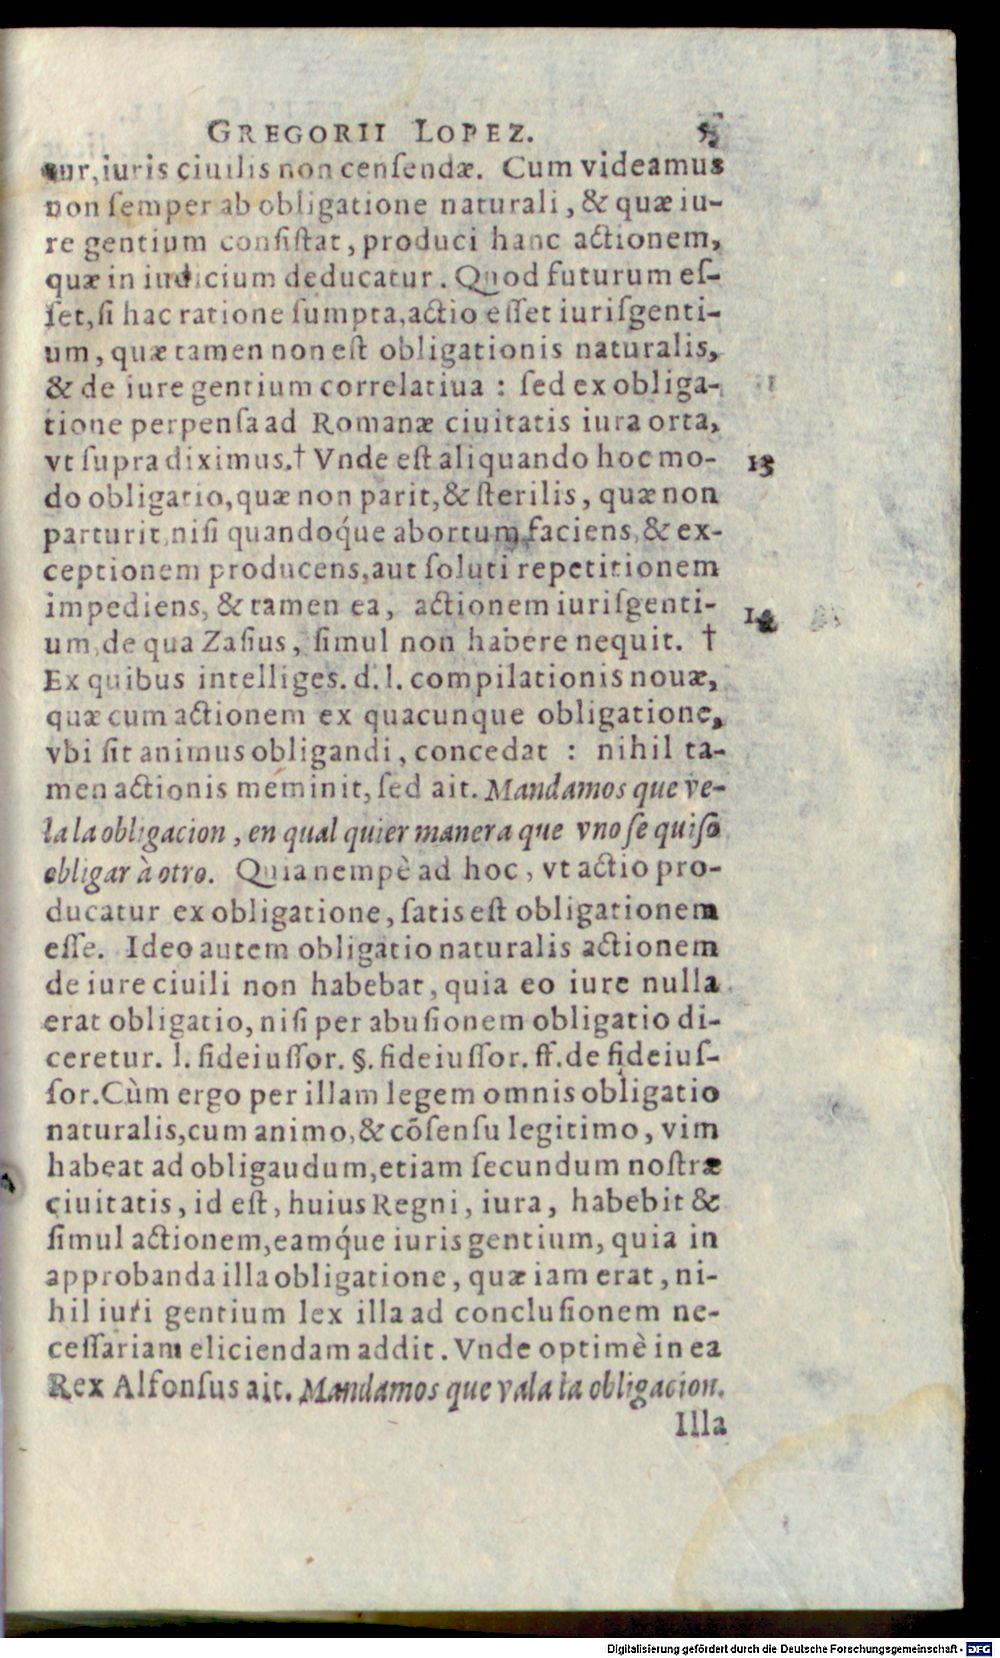 GREGORII LOPEZ. 5
tur, iuris ciuilis non censendæ. Cum videamus
non semper ab obligatione naturali, & quæ iu-
re gentium consistat, produci hanc actionem,
quæ in iudicium deducatur. Quod futurum es-
set, si hac ratione sumpta, actio esset iurisgenti-
um, quæ tamen non est obligationis naturalis,
& de iure gentium correlatiua : sed ex obliga-
tione perpensa ad Romanæ ciuitatis iura orta,
vt supra diximus.† Vnde est aliquando hoc mo- 13
do obligatio, quæ non parit, & sterilis, quæ non
parturit, nisi quandoq́ue abortum faciens, & ex-
ceptionem producens, aut soluti repetitionem
impediens, & tamen ea, actionem iurisgenti- 14
um, de qua Zasius, simul non habere nequit. †
Ex quibus intelliges. d. l. compilationis nouæ,
quæ cum actionem ex quacunque obligatione,
vbi sit animus obligandi, concedat : nihil ta-
men actionis meminit, sed ait. Mandamos que ve-
la la obligacion, en qual quier manera que vno se quiso
obligar à otro. Quia nempè ad hoc, vt actio pro-
ducatur ex obligatione, satis est obligationem
esse. Ideo autem obligatio naturalis actionem
de iure ciuili non habebat, quia eo iure nulla
erat obligatio, nisi per abusionem obligatio di-
ceretur. l. fideiussor. §. fideiussor. ff. de fideius-
sor. Cùm ergo per illam legem omnis obligatio
naturalis, cum animo, & cõsensu legitimo, vim
habeat ad obligaudum, etiam secundum nostræ
ciuitatis, id est, huius Regni, iura, habebit &
simul actionem, eamq́ue iuris gentium, quia in
approbanda illa obligatione, quæ iam erat, ni-
hil iuri gentium lex illa ad conclusionem ne-
cessariam eliciendam addit. Vnde optimè in ea
Rex Alfonsus ait. Mandamos que vala la obligacion.
Illa
Digitalisierung gefördert durch die Deutsche Forschungsgemeinschaft - DFG